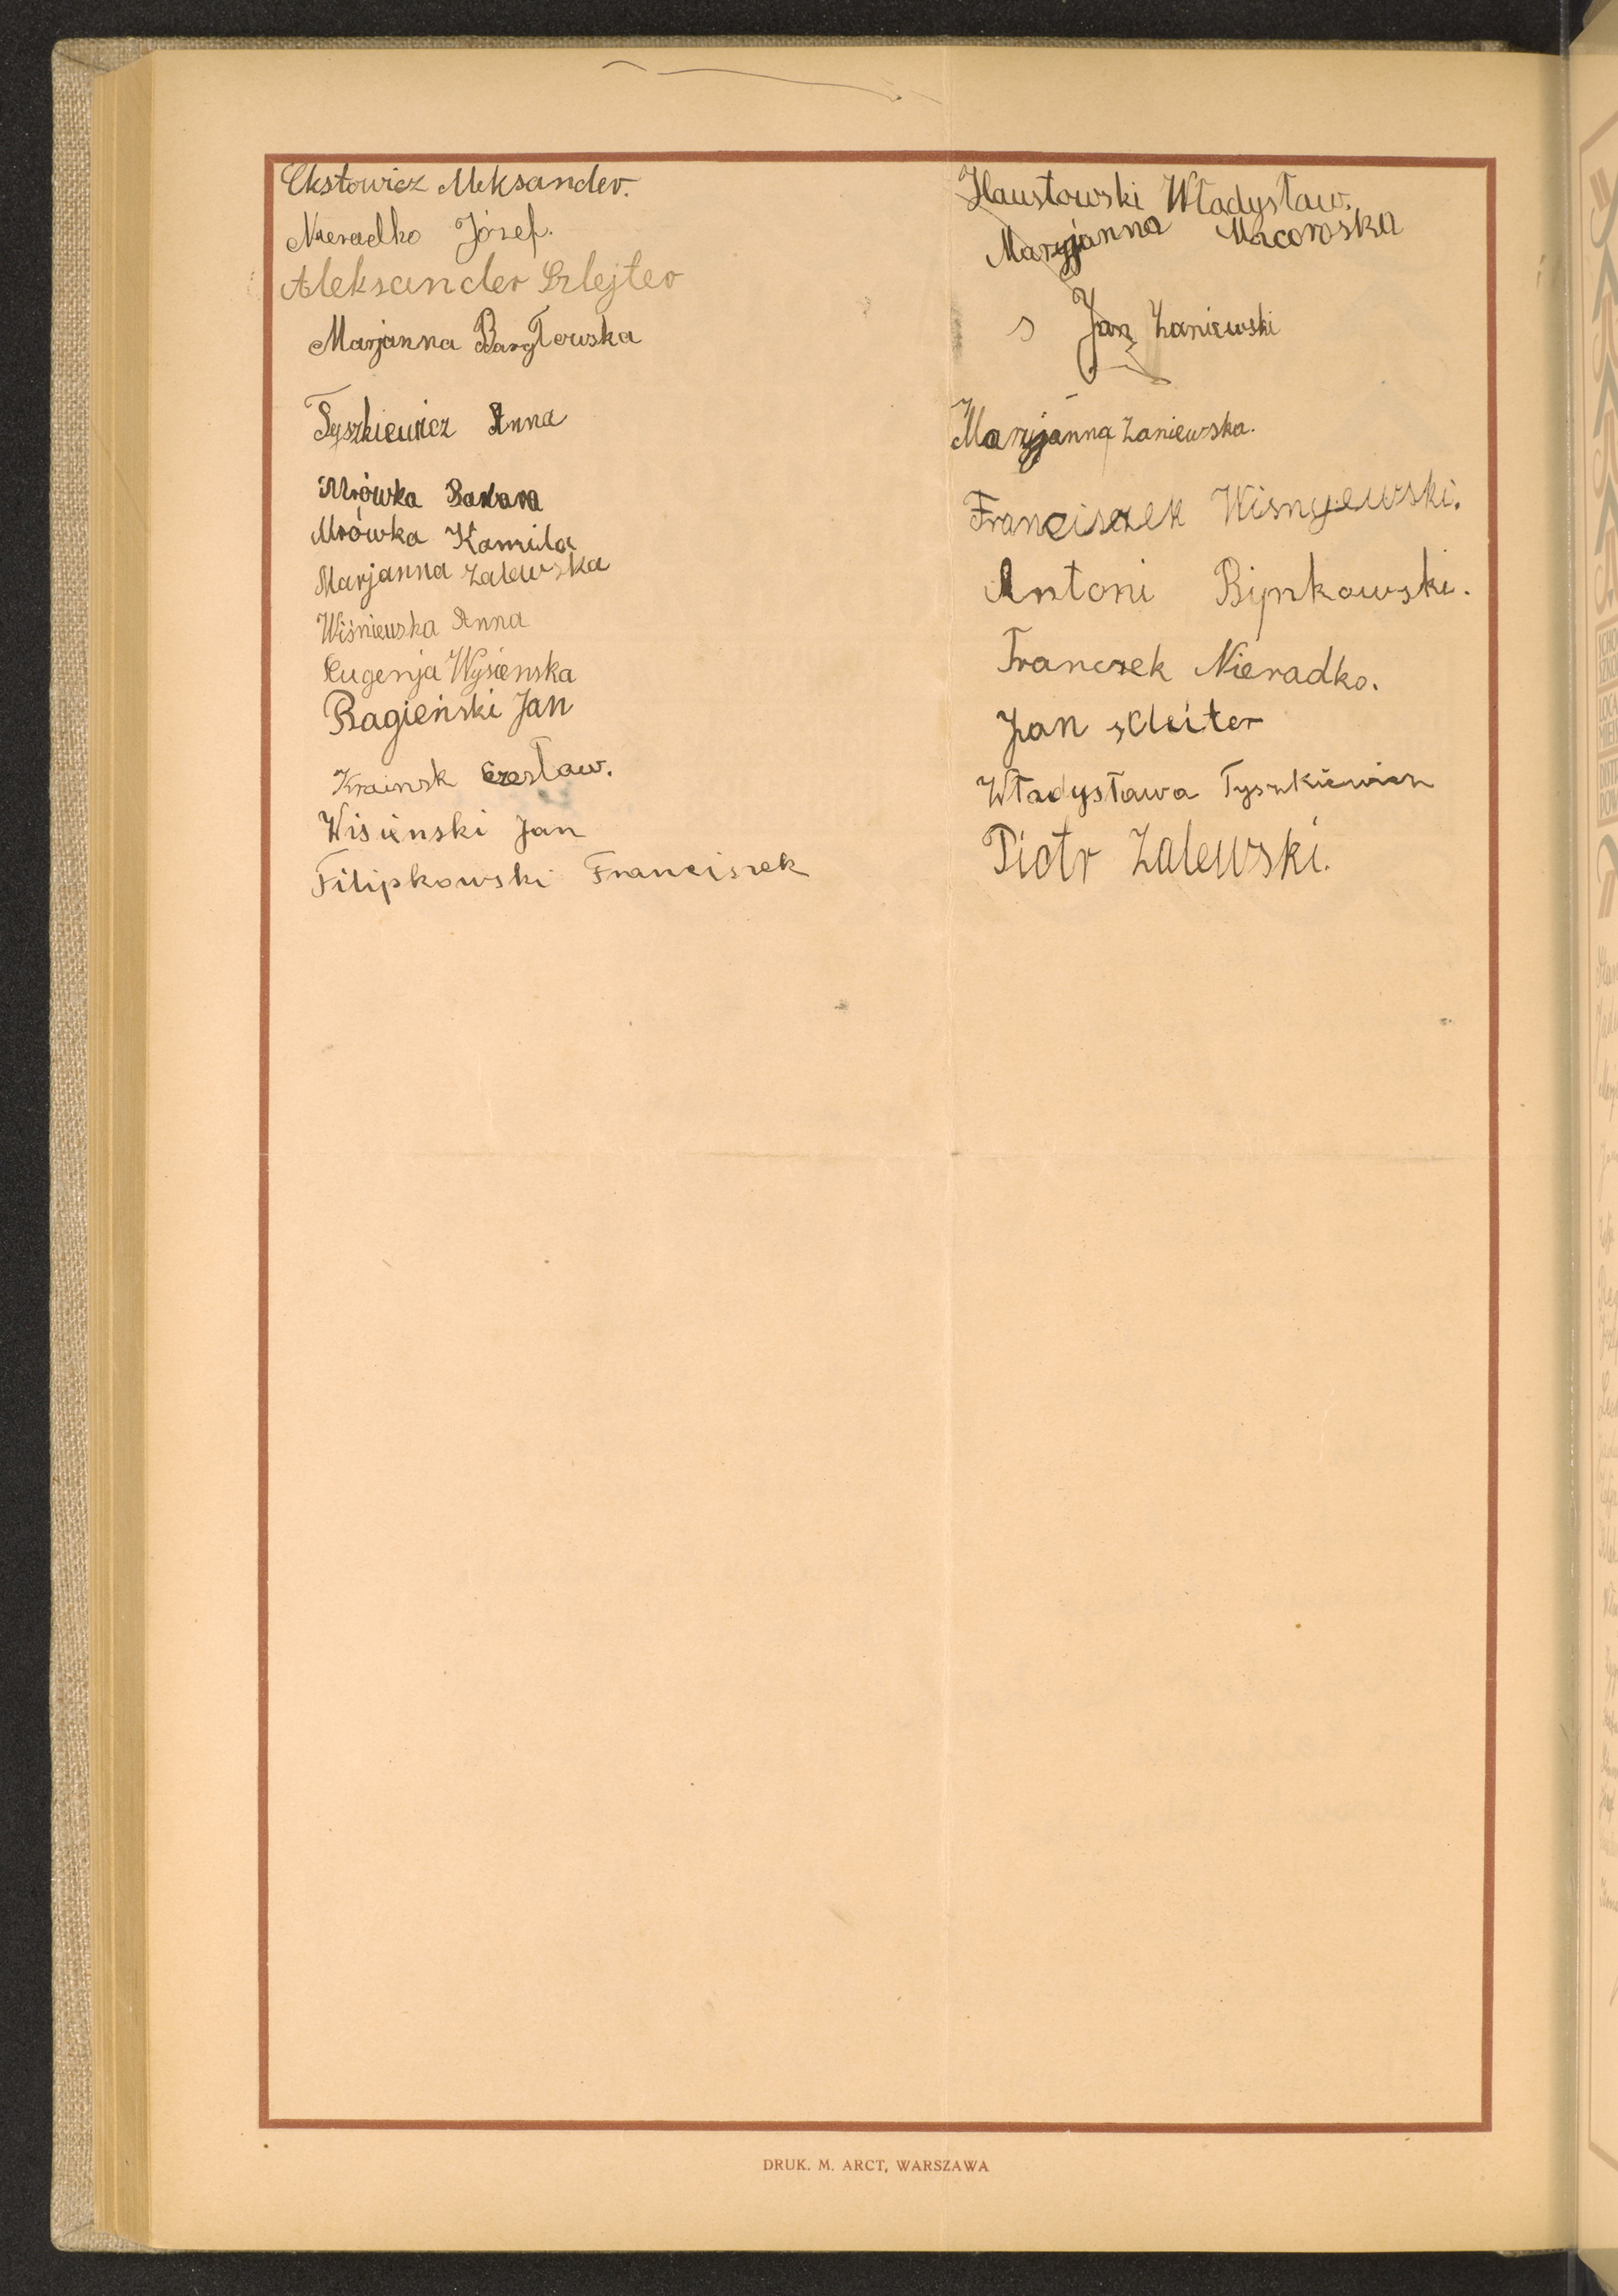 Ekstowicz Aleksander.
Nieradko Józef.
Aleksander Szlejter
Marjanna Bargłowska
Tyszkiewicz Anna
Mrówka Barbara
Mrówka Kamila
Marjanna Zalewska
Wiśniewska Anna
Eugenja Wysienska
Bagieński Jan
Krainsk Czesław.
Wisienski Jan
Filipkowski Franciszek
Haustowski Władysław.
Maryjanna
Jan Zaniewski
Maryjanna Zaniewska.
Franciszek Wisnyewski.
Antoni Bynkowski.
Franczek Nieradko.
Jan
Władysława Tyszkiewicz
Piotr Zalewski.
DRUK. M. ARCT, WARSZAWA